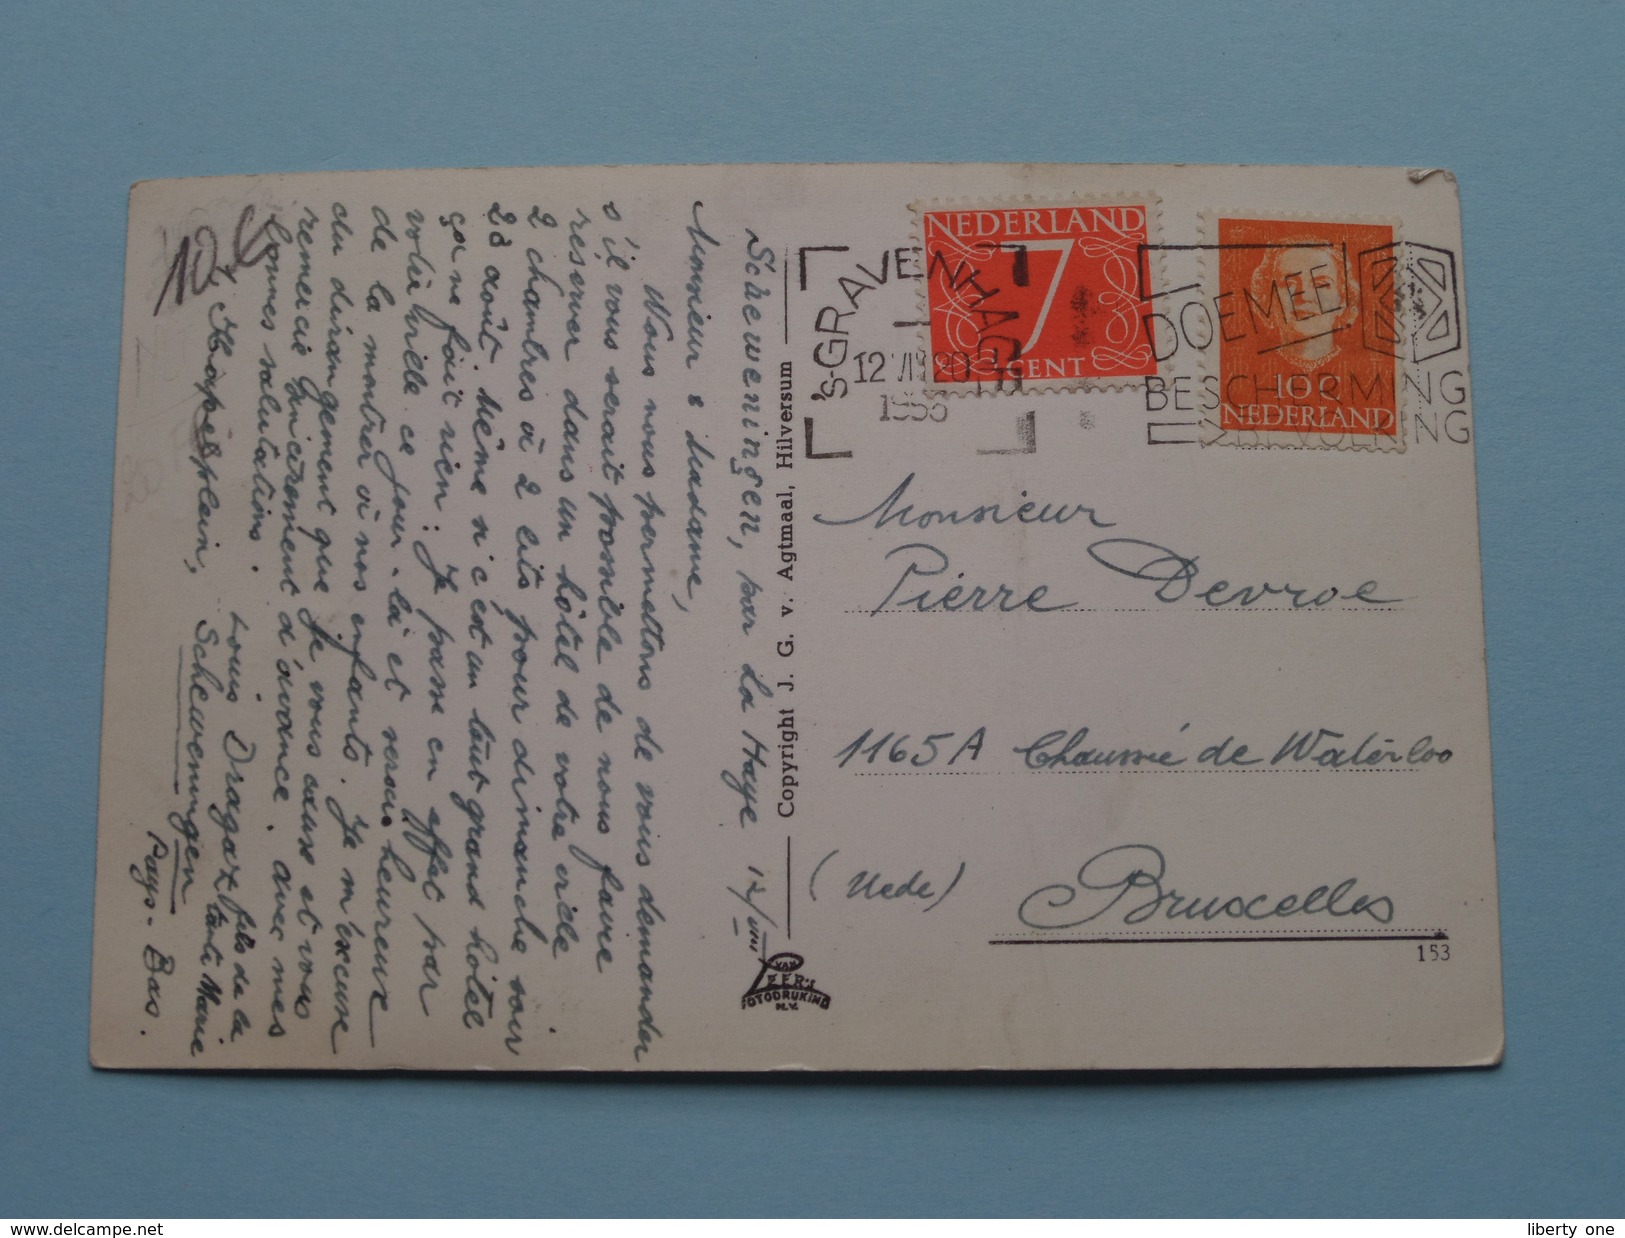 Scheweningen, par La Haye 12/VIII
Monsieur & Madame,
Nous nous permettons de vous demander
s'il vous serait possible de nous faire
reserver dans un hôtel de votre ville
2 chambres à 2 lits pour dimanche soir
28 août. Même si c'est un tout grand hôtel
ça ne fait rien: Je passe en effet par
votre ville ce jour-là et serais heureux
de la montrer à nos enfants. Je m'excuse
du dérangement que je vous cause et vous
remercie sincèrement d'avance. avec mes
bonnes salutations.
Louis Dragaz fils de la
tante Marie
Scheweningen
Pays-Bas.
Copyright J. G. v. Agtmaal, Hilversum
VAN LEER'S
FOTODRUKIND
N.V.
NEDERLAND
7
CENT
10 C
NEDERLAND
'S-GRAVENHAGE
12 VIII 20
1955
DOE MEE
BESCHERMING
BEVOLKING
Monsieur
Pierre Devroe
1165A Chaussée de Waterloo
(Uccle)
Bruxelles
153
liberty one